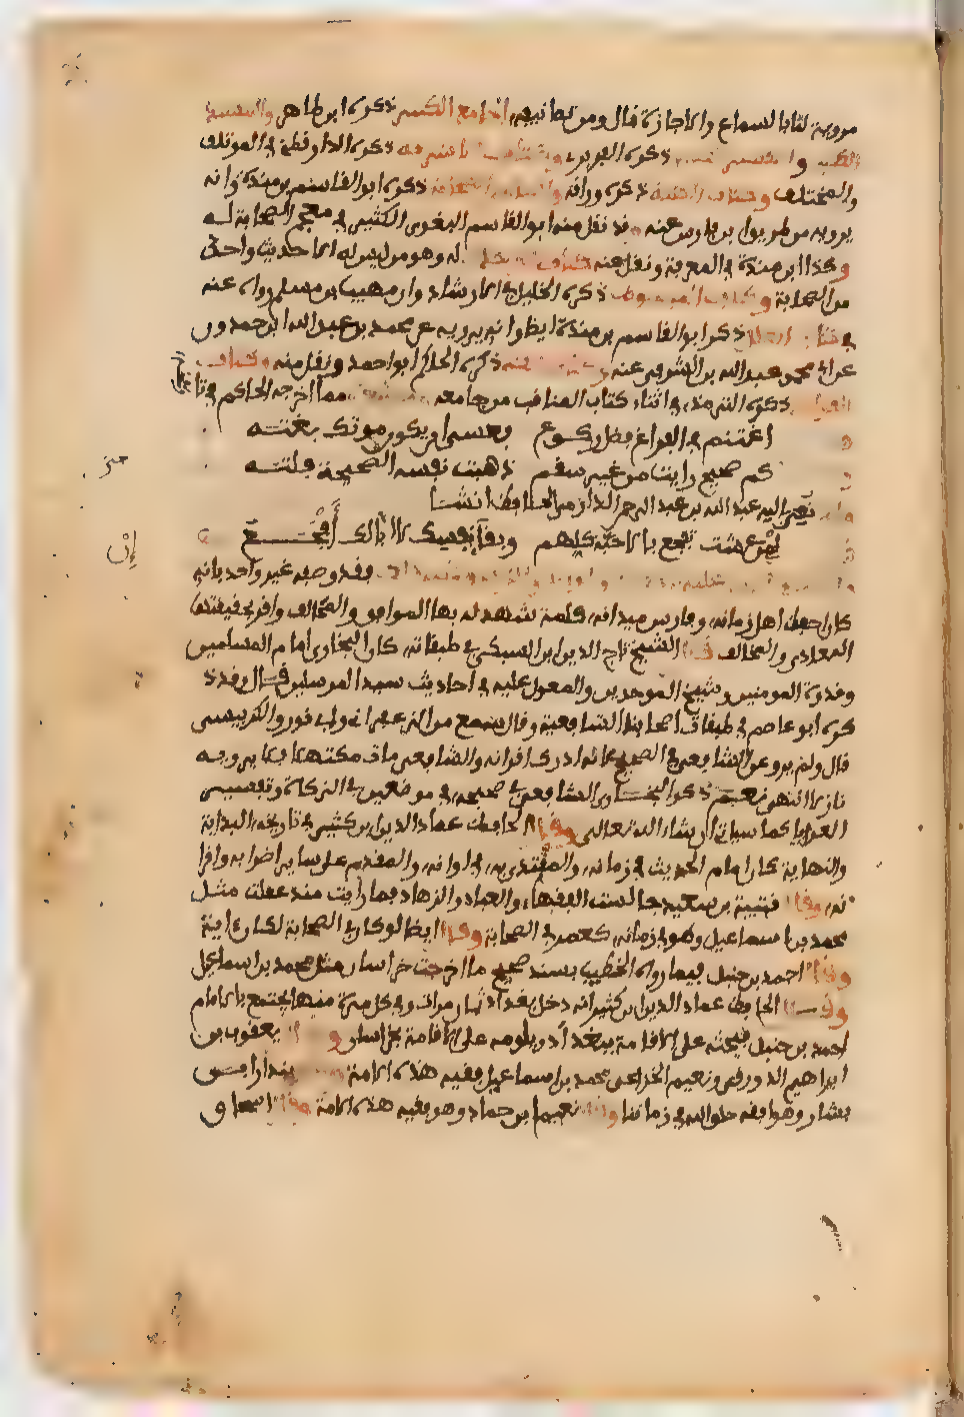 مروية لنا بالسماع والاجازة قال ومن تصانيفه الجامع الكبير ذكره ابن طاهر والمسند
الكبير والتفسير الكبير ذكره الفربري وكتاب الاشربة ذكره الدارقطني في الموتلف
والمختلف وكتاب الهبة ذكره وراقه واسامي الصحابة ذكره ابو القاسم بن مندة وانه
يرويه من طريق ابن فارس عنه وقد نقل منه ابو القاسم البغوي الكثير في معجم الصحابة له
وكذا ابن مندة في المعرفة ونقل عنه كتاب له وهو من ليس له الا حديث واحد
من الصحابة وكتاب المبسوط ذكره الخليلي في الارشاد وان مهيب بن مسلم رواه عنه
في كتاب العلل ذكره ابو القاسم بن مندة ايضا وانه يرويه عن محمد بن عبد الله ابن حمدون
عن ابي محمد عبد الله بن الشرقي عنه وكتاب الكنى ذكره الحاكم ابو احمد ونقل منه وكتاب
الفوايد ذكره الترمذي في اثناء كتاب المناقب من جامعه مما اخرجه الحاكم في تاريخه
اغتنم في الفراغ فضل ركوع فعسى ان يكون موتك بغتة
كم صحيح رايت من غير سقم ذهبت نفسه الصحيحة فلتة
نعي اليه عبد الله بن عبد الرحمن الدارمي الحافظ انشا
ان عشت تفجع بالاحبة كلهم وبقاء نفسك لا ابا لك افجع
فقد وصفه غير واحد بانه
كان احفظ اهل زمانه وفارس ميدانه كلمة شهد له بها الموافق والمخالف واقر بحقيقتها
المعادي والمخالف قال الشيخ تاج الدين ابن السبكي في طبقاته كان البخاري امام المسلمين
وقدوة المومنين وشيخ الموحدين والمعول عليه في احاديث سيد المرسلين قال وقد ذ
كره ابو عاصم في طبقات اصحابنا الشافعية وقال سمع من الزعفراني وابي ثور والكرابيسي
قال ولم يرو عن الشافعي في الصحيح لانه ادرك اقرانه والشافعي مات مكتهلا فلا يرويه
نازلا انتهى نعم ذكر البخاري الشافعي في صحيحه في موضعين في الزكاة وتفسير
العرايا كما سياتي ان شاء الله تعالى وقال الحافظ عماد الدين بن كثير في تاريخه البداية
والنهاية كان امام الحديث في زمانه والمقتدى به في اوانه والمقدم على ساير اضرابه واقرا
نه وقال قتيبة بن سعيد جالست الفقهاء والعباد والزهاد فما رايت منذ عقلت مثل
محمد بن اسماعيل وهو في زمانه كعمر في الصحابة وقال ايضا لو كان في الصحابة لكان اية
وقال احمد بن حنبل فيما رواه الخطيب بسند صحيح ما اخرجت خراسان مثل محمد بن اسماعيل
وقال الحافظ عماد الدين بن كثير انه دخل بغداد ثمان مرات وفي كل مرة منها يجتمع بالامام
احمد بن حنبل فيحثه على الاقامة ببغداد ويلومه على الاقامة بخراسان وقال يعقوب بن
ابراهيم الدورقي ونعيم الخزاعي محمد بن اسماعيل فقيه هذه الامة بندار بن
بشار وهو افقه خلق الله في زماننا وقال نعيم ابن حماد وهو فقيه هذه الامة وقال اسحاق